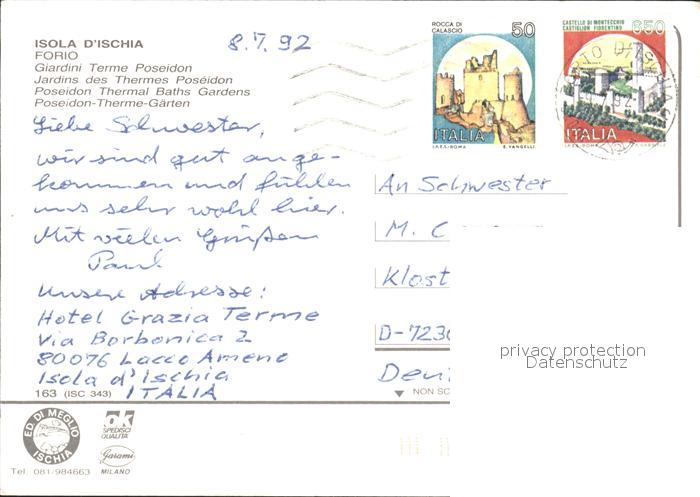 ISOLA D'ISCHIA
FORIO
Giardini Terme Poseidon
Jardins des Thermes Poséidon
Poseidon Thermal Baths Gardens
Poseidon-Therme-Gärten
8.7.92
ROCCA DI CALASCIO
50
ITALIA
I.P.Z.S.-ROMA E. VANGELLI
CASTELLO DI MONTECCHIO
CASTIGLION FIORENTINO
650
ITALIA
I.P.Z.S.-ROMA
Liebe Schwester,
wir sind gut ange-
kommen und fühlen
uns sehr wohl hier.
Mit vielen Grüßen
Paul
Unsere Adresse:
Hotel Grazia Terme
Via Borbonica 2
80076 Lacco Ameno
Isola d'Ischia
ITALIA
An Schwester
M. C
Klost
D-7230
163 (ISC 343)
NON SC
privacy protection
Datenschutz
ED. DI MEGLIO
ISCHIA
Tel. 081/984663
ok
SPEDISCI
QUALITÀ
Garami
MILANO